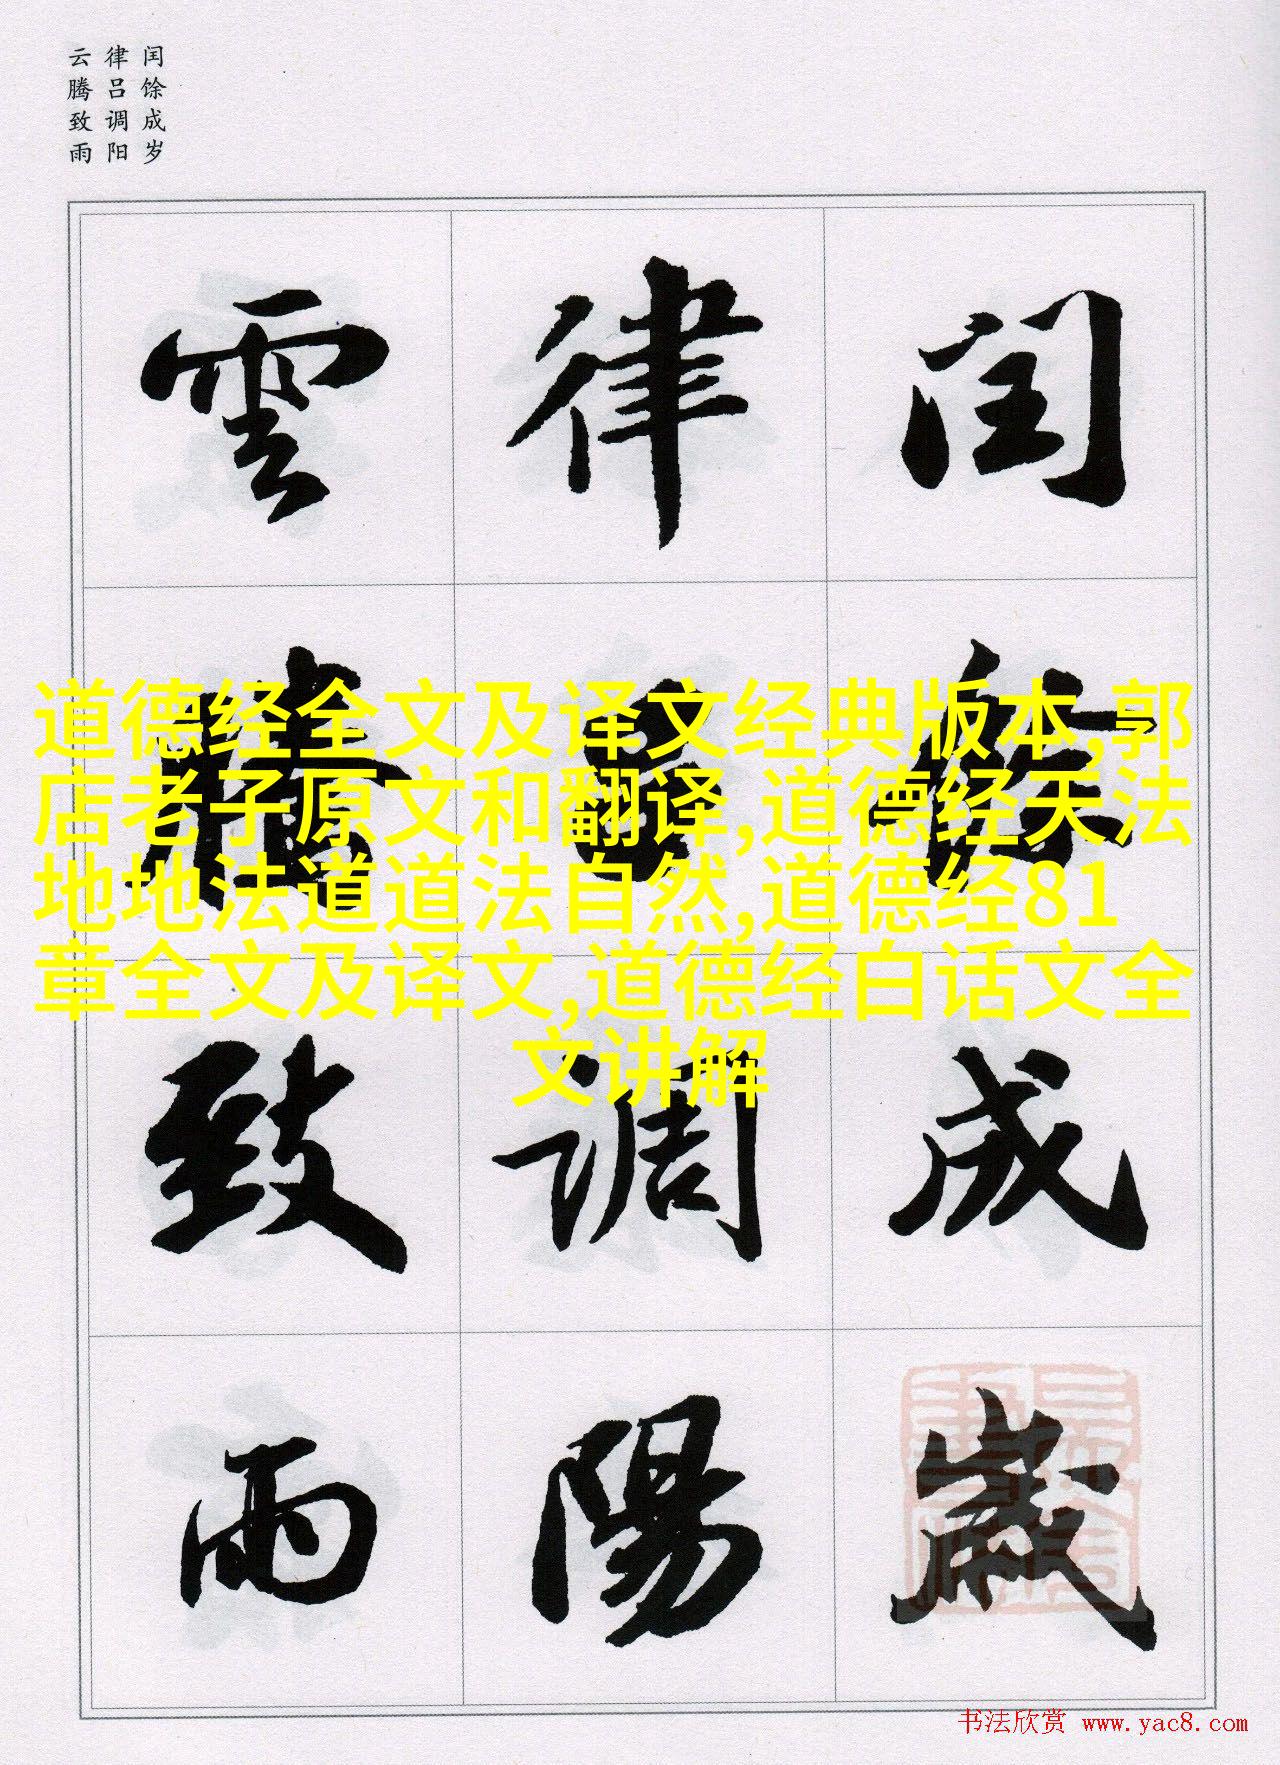 闰馀成岁
律吕调阳
云腾致雨
閏餘成歲
律呂調陽
雲騰致雨
道德经全文及译文经典版本,郭
店老子原文和翻译,道德经天法
地地法道道法自然,道德经81
章全文及译文,道德经白话文全
文讲解
书法欣赏 www.yac8.com